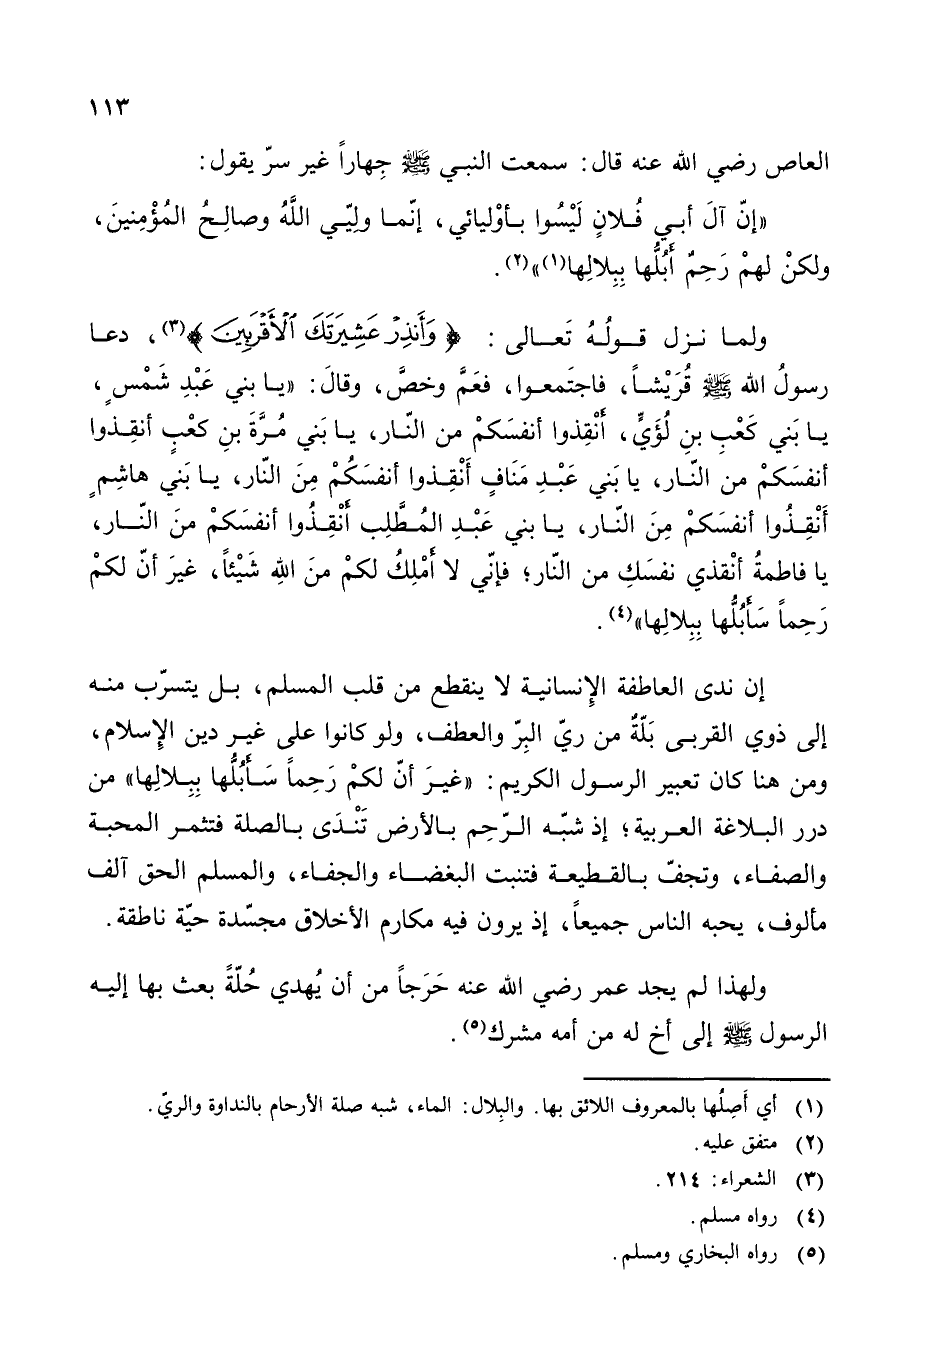 ١١٣
العاص رضي الله عنه قال: سمعت النبي ﷺ جِهاراً غير سرّ يقول:
«إنّ آلَ أبي فُلانٍ لَيْسُوا بأوْليائي، إنّما ولِيّي اللَّهُ وصالِحُ المُؤْمِنينَ،
ولكنْ لهمْ رَحِمٌ أَبُلُّها بِبِلالِها(١)»(٢).
ولما نزل قولُهُ تَعالى: ﴿ وَأَنذِرْ عَشِيرَتَكَ ٱلْأَقْرَبِينَ ﴾(٣)، دعا
رسولُ الله ﷺ قُرَيْشاً، فاجتَمعوا، فعَمَّ وخصَّ، وقالَ: «يا بني عَبْدِ شَمْسٍ،
يا بَني كَعْبِ بنِ لُؤَيٍّ، أَنْقِذوا أنفسَكمْ من النّار، يا بَني مُرَّةَ بنِ كعْبٍ أنقِذوا
أنفسَكمْ من النّار، يا بَني عَبْدِ مَنَافٍ أَنْقِذوا أنفسَكُمْ مِنَ النّار، يا بَني هاشِمٍ
أَنْقِذُوا أنفسَكمْ مِنَ النّار، يا بني عَبْدِ المُطَّلِب أَنْقِذُوا أنفسَكمْ منَ النّار،
يا فاطمةُ أنْقذي نفسَكِ من النّار؛ فإنّي لا أَمْلِكُ لكمْ منَ اللهِ شَيْئاً، غيرَ أنّ لكمْ
رَحِماً سَأَبُلُّها بِبِلالِها»(٤).
إن ندى العاطفة الإنسانية لا ينقطع من قلب المسلم، بل يتسرّب منه
إلى ذوي القربى بَلّةٌ من ريّ البِرّ والعطف، ولو كانوا على غير دين الإسلام،
ومن هنا كان تعبير الرسول الكريم: «غيرَ أنّ لكمْ رَحِماً سَأَبُلُّها بِبِلالِها» من
درر البلاغة العربية؛ إذ شبّه الرّحِم بالأرض تَنْدَى بالصلة فتثمر المحبة
والصفاء، وتجفّ بالقطيعة فتنبت البغضاء والجفاء، والمسلم الحق آلف
مألوف، يحبه الناس جميعاً، إذ يرون فيه مكارم الأخلاق مجسّدة حيّة ناطقة.
ولهذا لم يجد عمر رضي الله عنه حَرَجاً من أن يُهدي حُلّةً بعث بها إليه
الرسول ﷺ إلى أخ له من أمه مشرك(٥).
(١) أي أَصِلُها بالمعروف اللائق بها. والبِلال: الماء، شبه صلة الأرحام بالنداوة والريّ.
(٢) متفق عليه.
(٣) الشعراء: ٢١٤.
(٤) رواه مسلم.
(٥) رواه البخاري ومسلم.